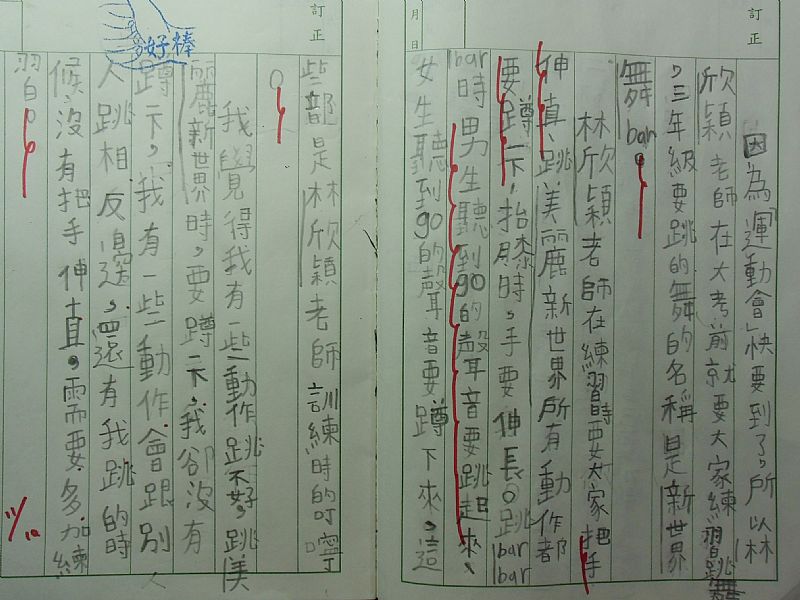 訂正
月
日
因為「運動會」快要到了,所以林
欣穎老師在大考前就要大家練習跳舞
,三年級要跳的舞的名稱是新世界
舞bar。
林欣穎老師在練習時要大家把手
伸直、跳美麗新世界所有動作都
要蹲下,抬膝時,手要伸長。跳bar bar
bar時男生聽到go的聲音要跳起來、
女生聽到go的聲音要蹲下來。這
訂正
好棒
些都是林欣穎老師訓練時的叮嚀
。
我覺得我有一些動作跳不好,跳美
麗新世界時,要蹲下,我卻沒有
蹲下,我有一些動作會跟別
人跳相反邊,還有我跳的時
候,沒有把手伸直,需要多加練
習。
11/10